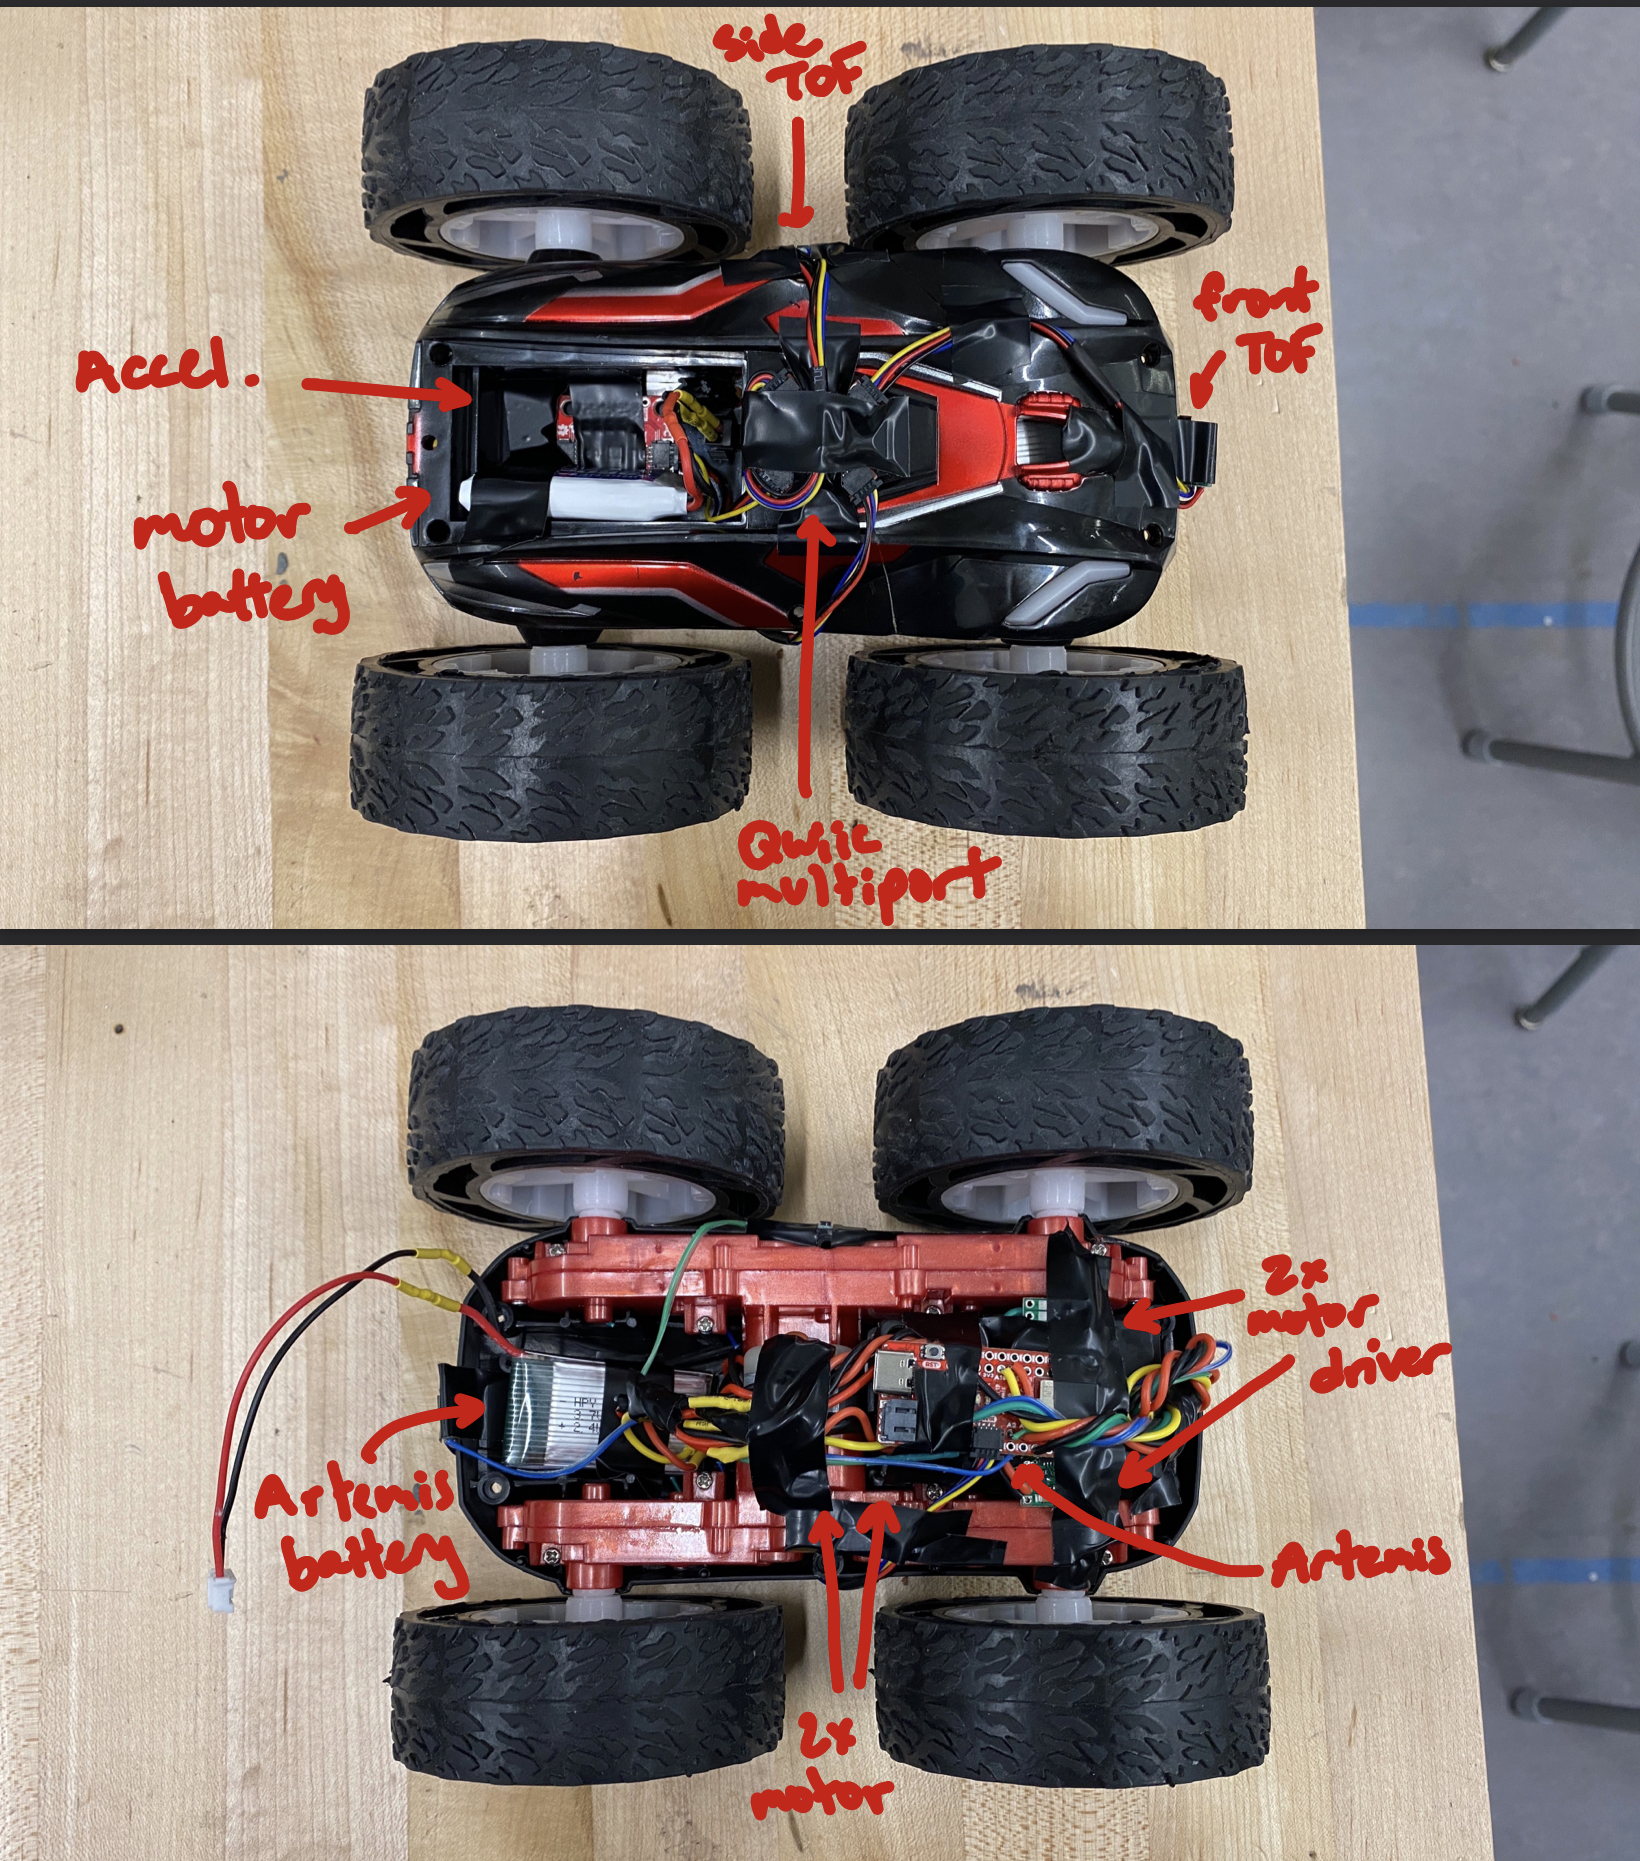 side
TOF
front
TOF
Accel.
motor
battery
Qwiic
multiport
2x
motor
driver
RST
Artemis
battery
Artemis
2x
motor